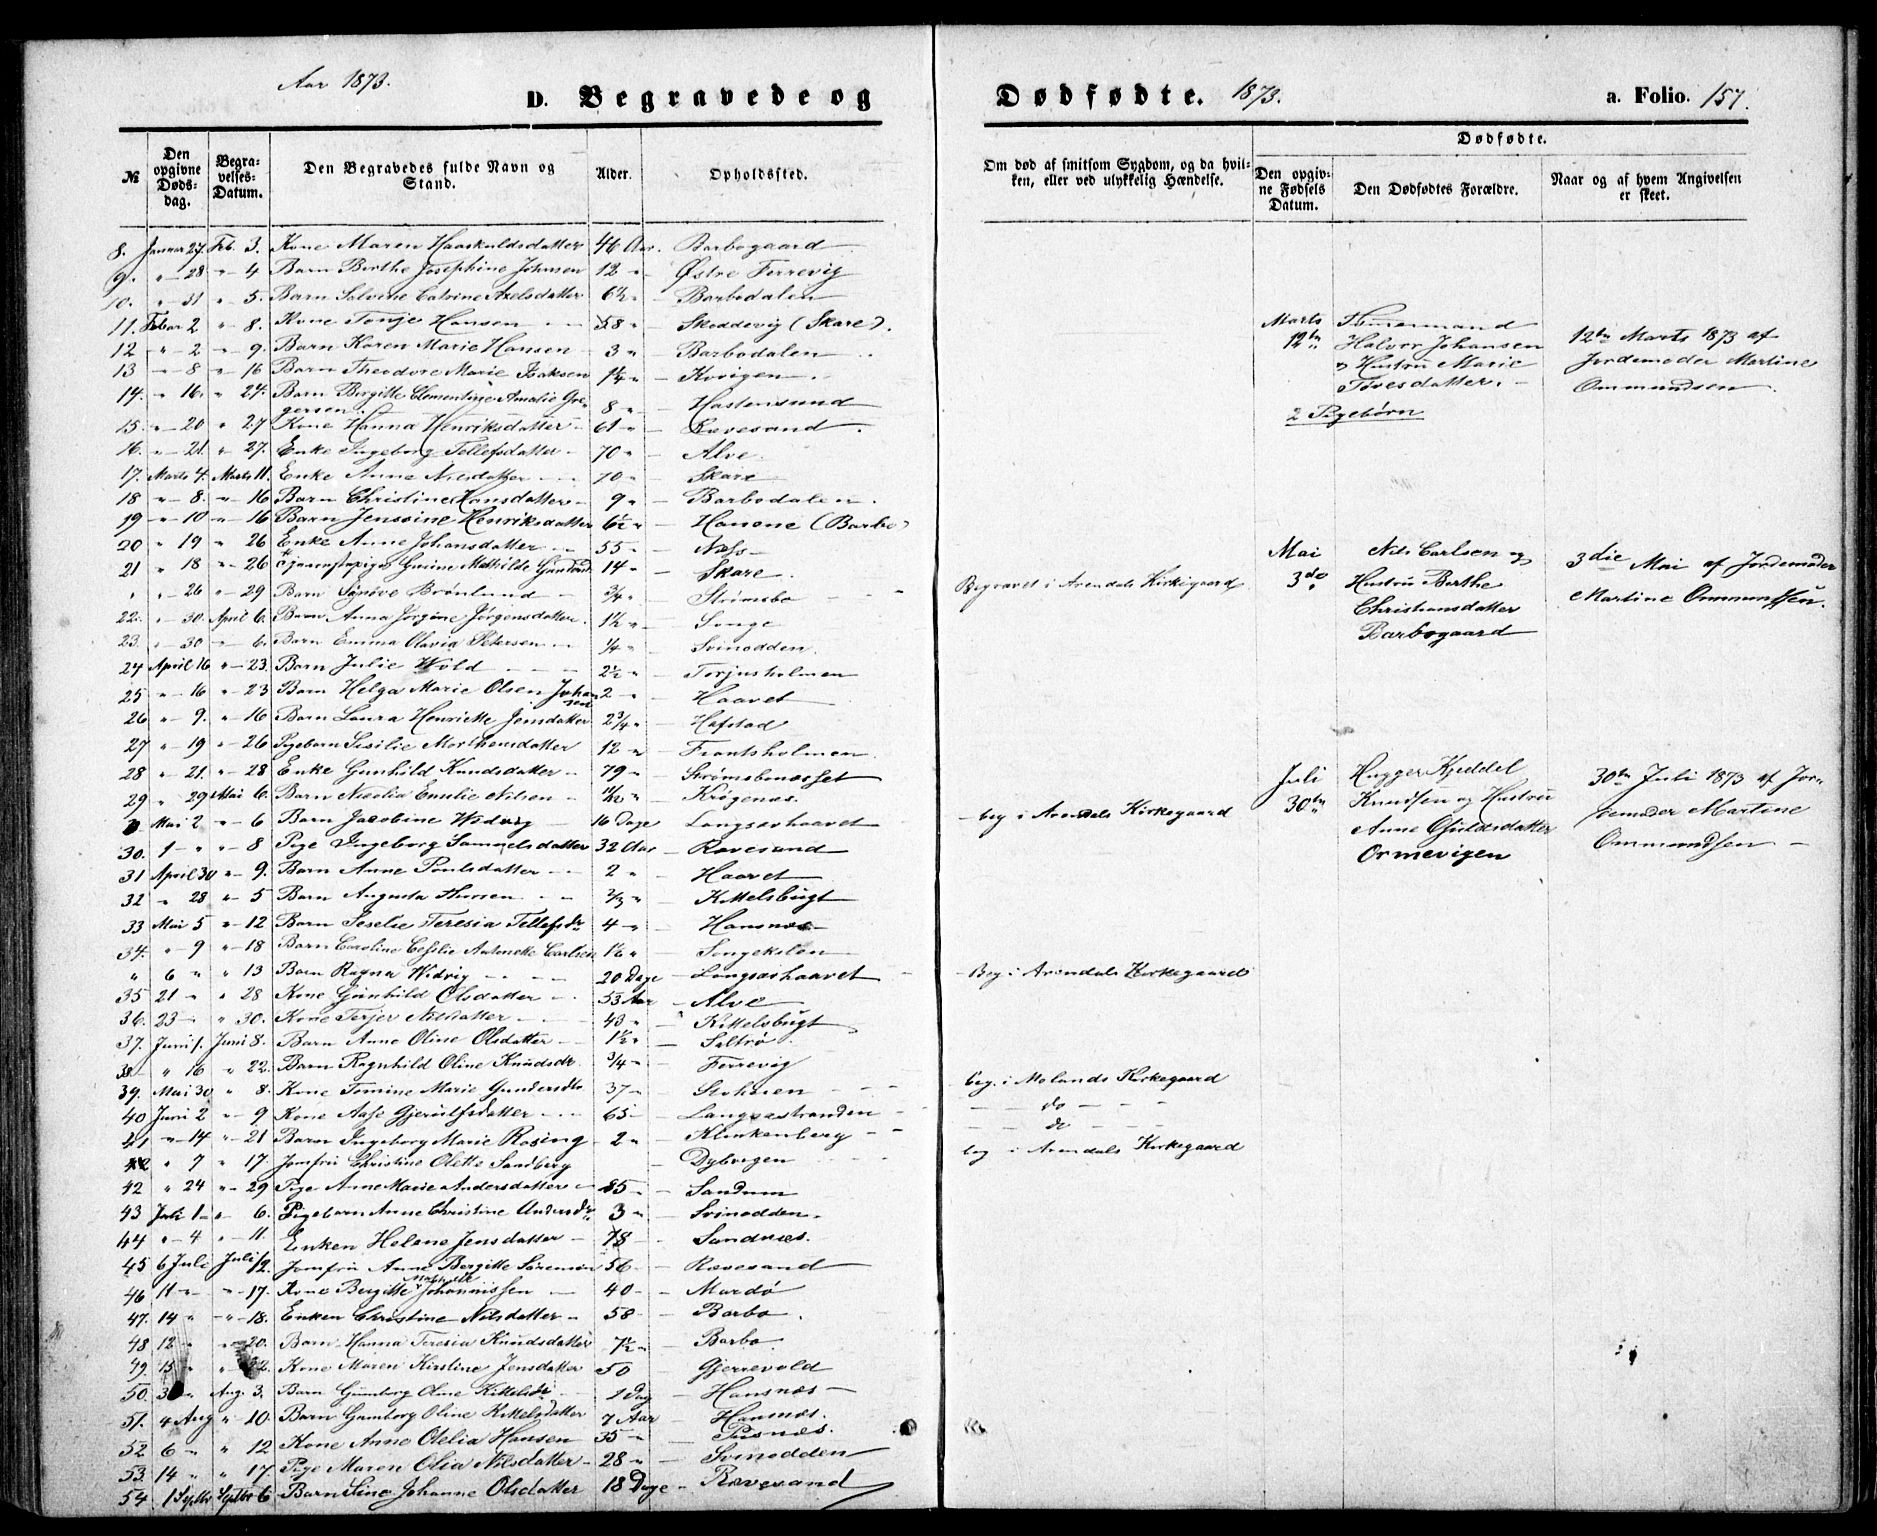 Aar 1873.
D. Begravede og
Dødfødte. 1873.
a. Folio. 157.
№
Den opgivne Døds-dag.
Begra-velses-Datum.
Den Begravedes fulde Navn og Stand.
Alder.
Opholdssted.
Om død af smitsom Sygdom, og da hvil-ken, eller ved ulykkelig Hændelse.
Dødfødte.
Den opgiv-ne Fødsels Datum.
Den Dødfødtes Forældre.
Naar og af hvem Angivelsen er skeet.
8. Januar 27. Feb. 3. Kone Maren Haaskuldsdatter 46 Aar. Barbogaard
9. " - 28 " - 4 Barn Berthe Josephine Johnsen 12 " - Østre Ferrevig
10. " - 31 " - 5. Barn Salvine Catrine Axelsdatter 6½ " - Barbodalen
11. Febar 2 " - 8. Kone Tonje Hansen 58 " - Skoddevig (Skare).
12 " - 2 " - 9. Barn Karen Marie Hansen 3 " - Barbodalen
13 " - 8 " - 16 Barn Theodore Marie Isaksen 1¼ " - Kvigen
14. " - 16. " - 24. Barn Bergitte Clementine Amalie Gre-
gersen. 8 " - Hastensund
15. " - 20 " 27 Kone Hanna Henriksdatter 61 " - Revesand.
16. " - 21. " - 27. Enke Ingeborg Tellefsdatter 70 " - Alve.
17. Marts 4. Marts 11. Enke Anne Nilsdatter 70 " - Skare
18 " - 8. " - 16 Barn Christine Hansdatter 9 " - Barbodalen.
19 " - 10 " - 16 Barn Jensine Henriksdatter 6½ " - Hanene (Barbo)
20 " 19 " 26 Enke Anne Johansdatter 55 " - Næs
21 " 18 " - 26 Gusine Mathilde 14 " - Skare.
" " - 26 " - 29 Barn Synøve Brønlund ¾ " - Strømsbo
Begravet i Arendals Kirkegaard
22. " - 30. April 6. Barn Anna Jørgine Jørgensdatter. 1½ " - Songe
23. " - 30 " - 6. Barn Emma Olavia Petersen ¼ " - Svinodden.
24 April 16 " - 23. Barn Julie Wold 2½ " - Torjusholmen
25 " - 16 " - 23 Barn Helga Marie Olsen Johansen 2 " - Haavet
26 " - 9. " - 16 Barn Laura Henriette Jensdatter 2¾ " - Hafstad
27 " - 19 " - 26 Pigebarn Sisilie Morthensdatter 12 " - Frantsholmen
28 " - 21. " - 28 Enke Gunhild Knudsdatter 79 " - Strømsbonæsset
29 " 29 Mai 6. Barn Nicolia Emilie Nilsen 11/12 " - Krøgenæs.
" Mai 2 " - 6 Barn Jacobine Widrig 16 Dage Langsæhaavet
- beg i Arendals Kirkegaard
30. 1 - " " - 8 Pige Ingeborg Samuelsdatter 32 Aar Revesand
31 April 30 " - 9. Barn Anne Poulsdatter 2 " - Haavet
32 " 28 " - 5 Barn Augusta Thorsen ⅔ " Kittelsbugt
33 Mai 5 " - 12 Barn Seselie Teresia Tellefsdr 4 " - Hansnæs
34. " - 9 " - 18 Barn Caroline Cesilie Antonette Carlsen 1½ " - Songekilen
" 6 " " 13 Barn Ragna Widrig 20 Dage Langsæhaavet
- Beg. i Arendals Kirkegaard
35 21 " " 28 Kone Gunhild Olsdatter 53 Aar Alve
36. 23 " " 30. Kone Terjer Nilsdatter 43 " - Kittelsbugt
37. Juni 1. Juni 8. Barn Anne Oline Olsdatter 1½ " Saltrø
38. " 16 " 22. Barn Ragnhild Oline Knudsdr ¾ " Ferrevig
39. Mai 30 " 8. Kone Tomine Marie Gundersdtr 37 " Stoksen
beg. i Molands Kirkegaard
40 Juni 2 " - 9 Kone Aase Gjerulfsdatter 65 - Langsæstranden
do
41 " - 14 " - 21 Barn Ingeborg Marie Rosing 2 " Klinkenberg
do
" 7 " 17. Jomfru Christine Olette Sandberg Dybvigen
beg i Arendals Kirkegaard
42 " 24 " - 29 Pige Anne Marie Andersdatter 85 - Sandum
43 Juli 1 - " 6. Pigebarn Anne Christine Andersdtr 3 " Svinodden.
44 " - 4 " - 11. Enken Helene Jensdatter 78 - Sandnæs.
45 6 Juli Juli 12. Jomfru Anne Bergitte Sørensen 56 - Revesand
46 11 " " - 17. Kone Bergitte Mathilde Johannissen 40 - Mardø
47. 14 " - " - 18. Enken Christine Nilsdatter 58 - Barbo.
48 12 " - 20. Barn Hanna Teresia Knudsdatter 7½ Barbo
49. 15 " " 22. Kone Maren Kirstine Jensdatter 50 Gjerrevold
50. 3 " Aug. 3. Barn Gunborg Oline Kittelsdr 1 Dag Hansnæs
51. 4 Aug " 10. Barn Gunborg Oline Kittelsdatter 7 Aar Hansnæs.
52 6 " " 12 Kone Anne Otelia Hansen 35 " Pusnæs.
53. 14 " " 17. Pige Maren Olia Nilsdatter 28 " Svinodden
54 1 Septbr Septbr 6 Barn Sine Johanne Olsdatter 18 Dage - Revesand
Marts
12te
Tømermand
Halvor Johansen
og Hustru Marie
Tovesdatter.
2 Pigebørn
12te Marts 1873 af
Jordemoder Martine
Ommundsen.
Mai
3die
Nils Carlsen og
Hustru Berthe
Christiansdatter
Barbogaard
3die Mai af Jordemoder
Martine Ommundsen.
Juli
30te
Hugger Kjeddel
Knudsen og Hustru
Anne Osuldsdatter
Ormevigen
30te Juli 1873 af Jor-
demoder Martine
Ommundsen